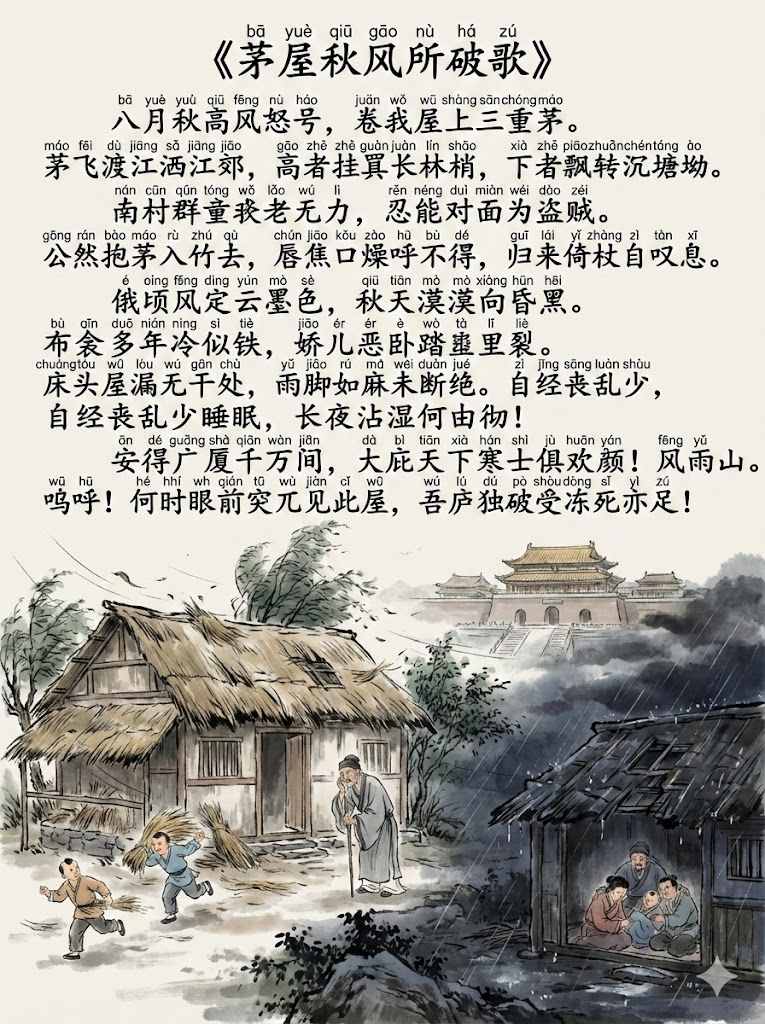 bā yuè qiū gāo nù há zú
《茅屋秋风所破歌》
bā yuè yuù qiū fēng nù háo juǎn wǒ wū shàng sān chóng máo
八月秋高风怒号，卷我屋上三重茅。
máo fēi dù jiāng sǎ jiàng jiāo gāo zhě zhè guàn juàn lín shāo xià zhě piāo zhuǎn chén táng ào
茅飞渡江洒江郊，高者挂长林梢，下者飘转沉塘坳。
nán cūn qún tóng wǒ lǎo wú lì rěn néng duì miàn wéi dào zéi
南村群童老无力，忍能对面为盗贼。
gōng rán bào máo rù zhú qù chún jiāo kǒu zào hū bù dé guī lái yǐ zhàng zì tàn xī
公然抱茅入竹去，唇焦口燥呼不得，归来倚杖自叹息。
é oing fēng dìng yún mò sè qiū tiān mò mò xiàng hūn hēi
俄顷风定云墨色，秋天漠漠向昏黑。
bù qīn duō nián ning sì tiè jiāo ér ér è wò tà lǐ liè
布衾多年冷似铁，娇儿恶卧踏里裂。
chuáng tóu wū lóu wú gān chù yǔ jiǎo rú má wèi duàn jué zì jīng sāng luàn shù
床头屋漏无干处，雨脚如麻未断绝。自经丧乱少，
自经丧乱少睡眠，长夜沾湿何由彻！
ān dé guǎng shà qiān wàn jiān dà bì tiān xià hán shì jù huān yán fēng yǔ
安得广厦千万间，大庇天下寒士俱欢颜！风雨山。
wū hū hé hhí wh qián tū wù jiàn cǐ wū wú lú dú pò shòu dòng sǐ yì zú
呜呼！何时眼前突兀见此屋，吾庐独破受冻死亦足！